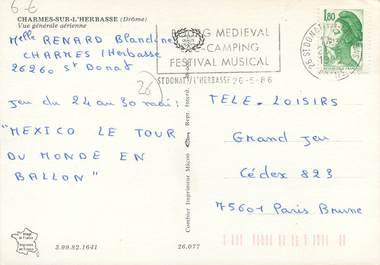 6-6
CHARMES-SUR-L'HERBASSE (Drôme)
Vue générale aérienne
Melle RENARD Blandine
CHARMES / Herbasse
26260 St Donat
26)
jeu du 24 au 30 mai:
"MEXICO LE TOUR
DU MONDE EN
BALLON"
3.99.82.1641
26.077
Combier Imprimeur Mâcon
Repr. Interd.
G MEDIEVAL
CAMPING
FESTIVAL MUSICAL
ST DONAT/L'HERBASSE 26-5-86
26 ST DONAT
1,80
TELE-LOISIRS
Grand jeu
Cédex 823
75601 Paris Brune